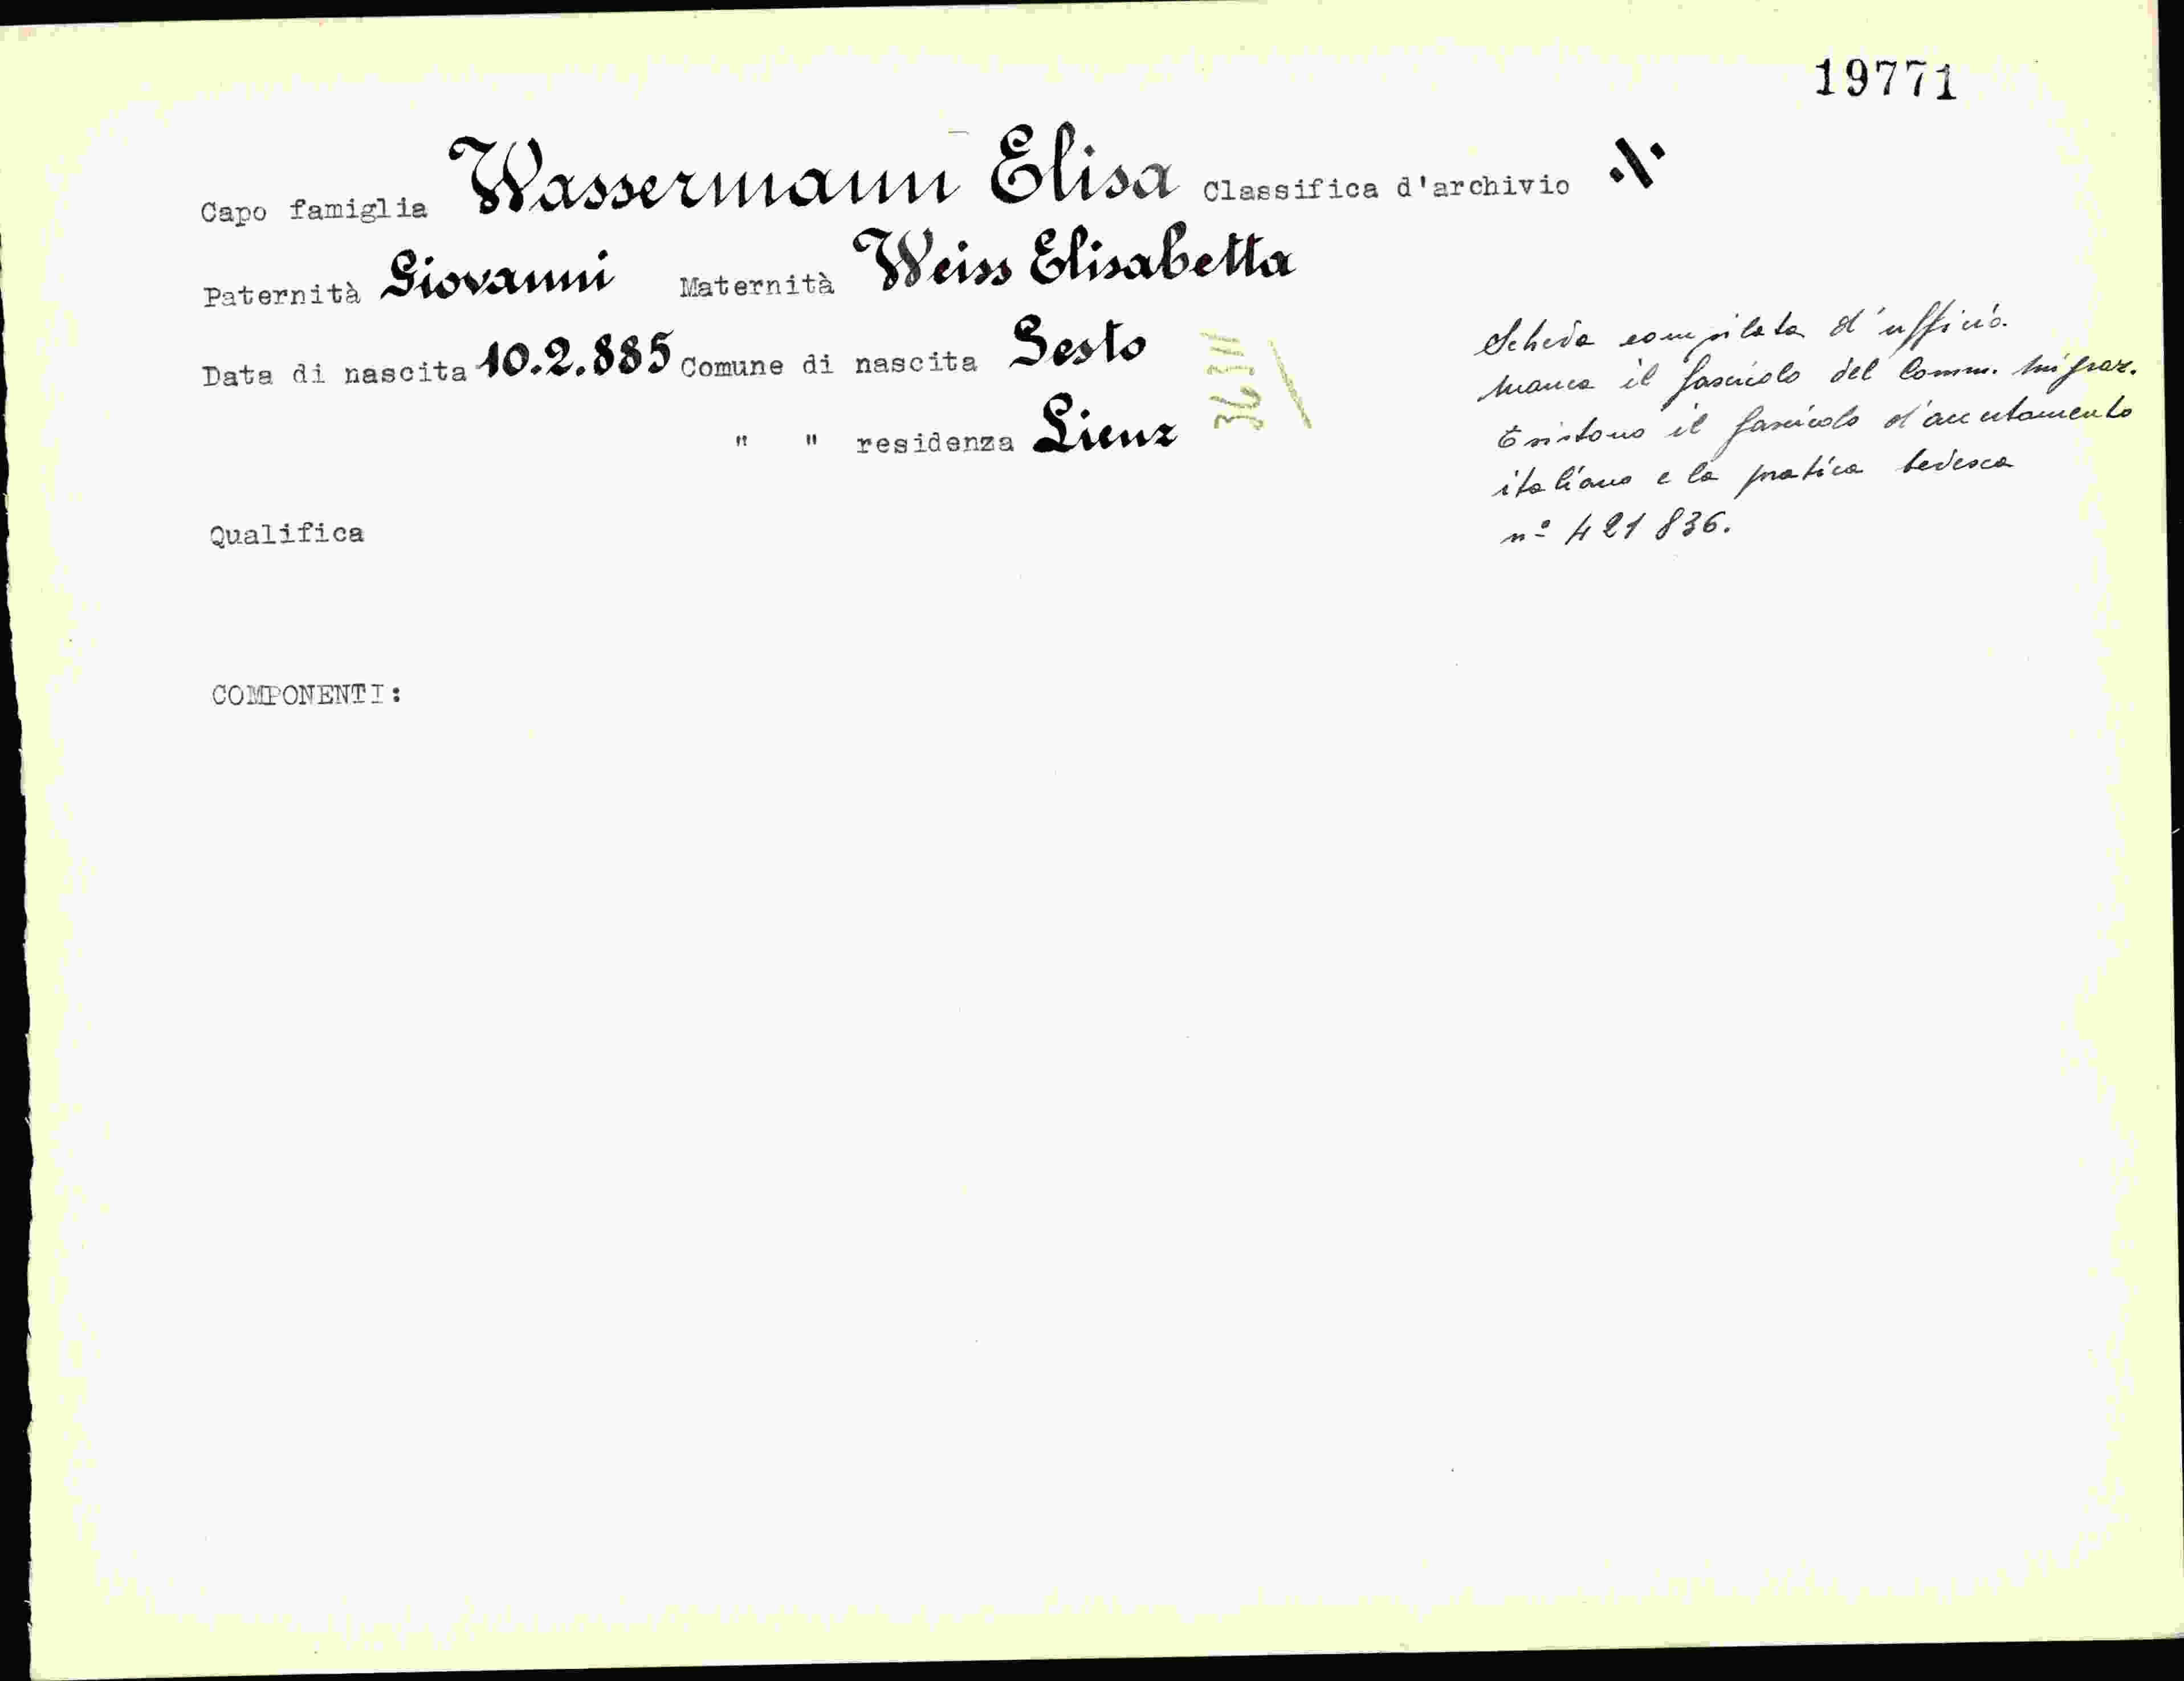 19771
Capo famiglia Wassermann Elisa Classifica d'archivio ·\·
Paternità Giovanni Maternità Weiss Elisabetta
Data di nascita 10.2.885 Comune di nascita Sesto
" " residenza Lienz
Scheda compilata d'ufficio.
Manca il fascicolo del Comm. Migraz.
Esistono il fascicolo d'accertamento
italiano e la pratica tedesca
nº 421836.
Qualifica
COMPONENTI: